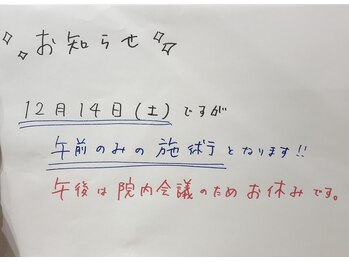 お知らせ
12月14日(土)ですが
午前のみの施術となります!!
午後は院内会議のためお休みです。